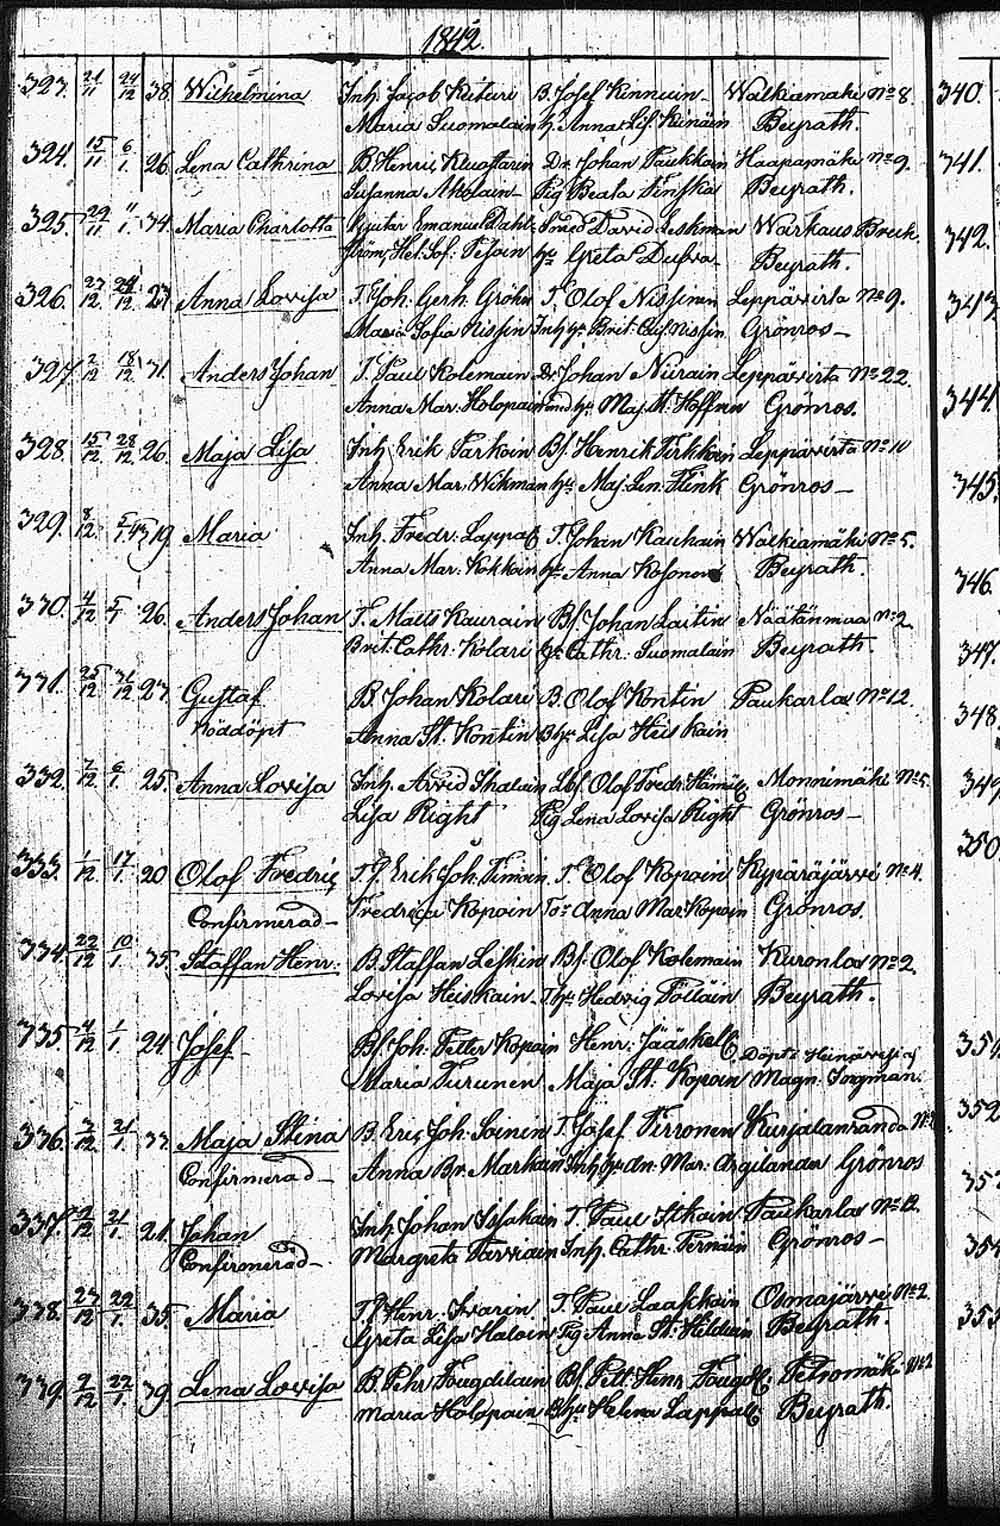 1842.
323. 21/11 24/12 38. Wilhelmina Inh. Jacob Kituri B. Josef Kinnuin Walkiamäki No 8
Maria Suomalain h. Anna Lis. Beyrath.
324. 15/11 6/1 26. Lena Cathrina B. Henric Dr. Johan Paukkain Haapamäki No 9.
Susanna Pig Beata Finska Beyrath.
325. 29/11 11/1. 34. Maria Charlotta Emanuel Dahl- Smed David Leskman Warkaus Bruk.
ström, Hel: Sof: hu Greta Beyrath.
326. 27/12 24/12 27 Anna Lovisa T. Joh: Gerh. Gröhn T. Olof Nissinen Leppävirta No 9.
Maria Sofia Nissin Inh hu Brit: Nissin Grönros
327. 2/12 18/12 31. Anders Johan T. Paul Kolemain Dr. Johan Niirain Leppävirta No 22.
Anna Mar: Holopain hu Maj. St: Hoffren Grönros.
328. 15/12 28/12 26. Maja Lisa Inh. Erik Parkoin Bs. Henrik Pirkkoin Leppävirta No 10
Anna Mar: Wikman hu Maj: Len: Flink Grönros
329. 8/12. 5/1 43 19. Maria Inh. Fredr: Lappal. T. Johan Kauhain Walkiamäki No 5.
Anna Mar: Kokkoin hu Anna Kosonen Beyrath.
330. 4/12 5/1 26. Anders Johan T. Matts Kaurain Bs. Johan Laitin Näätänmaa No 2.
Brit: Cathr: Kolari hu Cathr: Suomalain Beyrath.
331. 25/12 31/12 27. Gustaf B. Johan Kolari B. Olof Kontin Paukarlax No 12.
Nöddöpt Anna St. Kontin B hu Lisa Heiskain
332. 7/12 6/1. 25. Anna Lovisa Inh. Arvid Ihalain Lbs. Olof Fredr: Hämäl. Monnimäki No 5.
Lisa Right Pig Lena Lovisa Right Grönros
333. 1/12 17/1. 20 Olof Fredric T. S. Erik Joh: Timoin T. Olof Kopoin Kypäräjärvi No 4.
Confirmerad Fredrica Kopoin Tor Anna Mar: Kopoin Grönros.
334. 22/12 10/1 35. Staffan Henr: B. Staffan Leskin Bs. Olof Kolemain Kuronlax No 2.
Lovisa Heiskain. T. hu Hedvig Pölläin Beyrath.
335. 4/12 1/1. 24. Josef Bs. Joh: Petter Kopoin Henr: Jääskel. Döpt i Heinävesi af
Maria Turunen Maja St: Kopoin Magn: Forsman.
336. 3/12. 21/1. 33. Maja Stina B. Eric Joh: Soinin T. Josef Tirronen Kurjalanranda No 2
Confirmerad Anna Br. Markain Inh hu An: Mar: Argilander Grönros
337. 2/12 21/1 21. Johan Inh Johan Issakain T. Paul Itkoin Paukarlax No 12.
Confirmerad Margreta Tarvain Inh. Cathr. Pernäin Grönros
338. 27/12 22/1. 35. Maria T.S. Henr: Iivarin T. Paul Laaskain Osmajärvi No 2.
Greta Lisa Haloin Pig Anna St: Hilduin Beyrath.
339. 2/12 22/1. 39. Lena Lovisa B. Pehr Fougdilain Bs. Pett: Henr. Fougd. Petromäki No 2
Maria Holopain B hu Helena Lappal. Beyrath.
340.
341.
342.
343.
344.
345.
346.
347.
348.
349
350
352